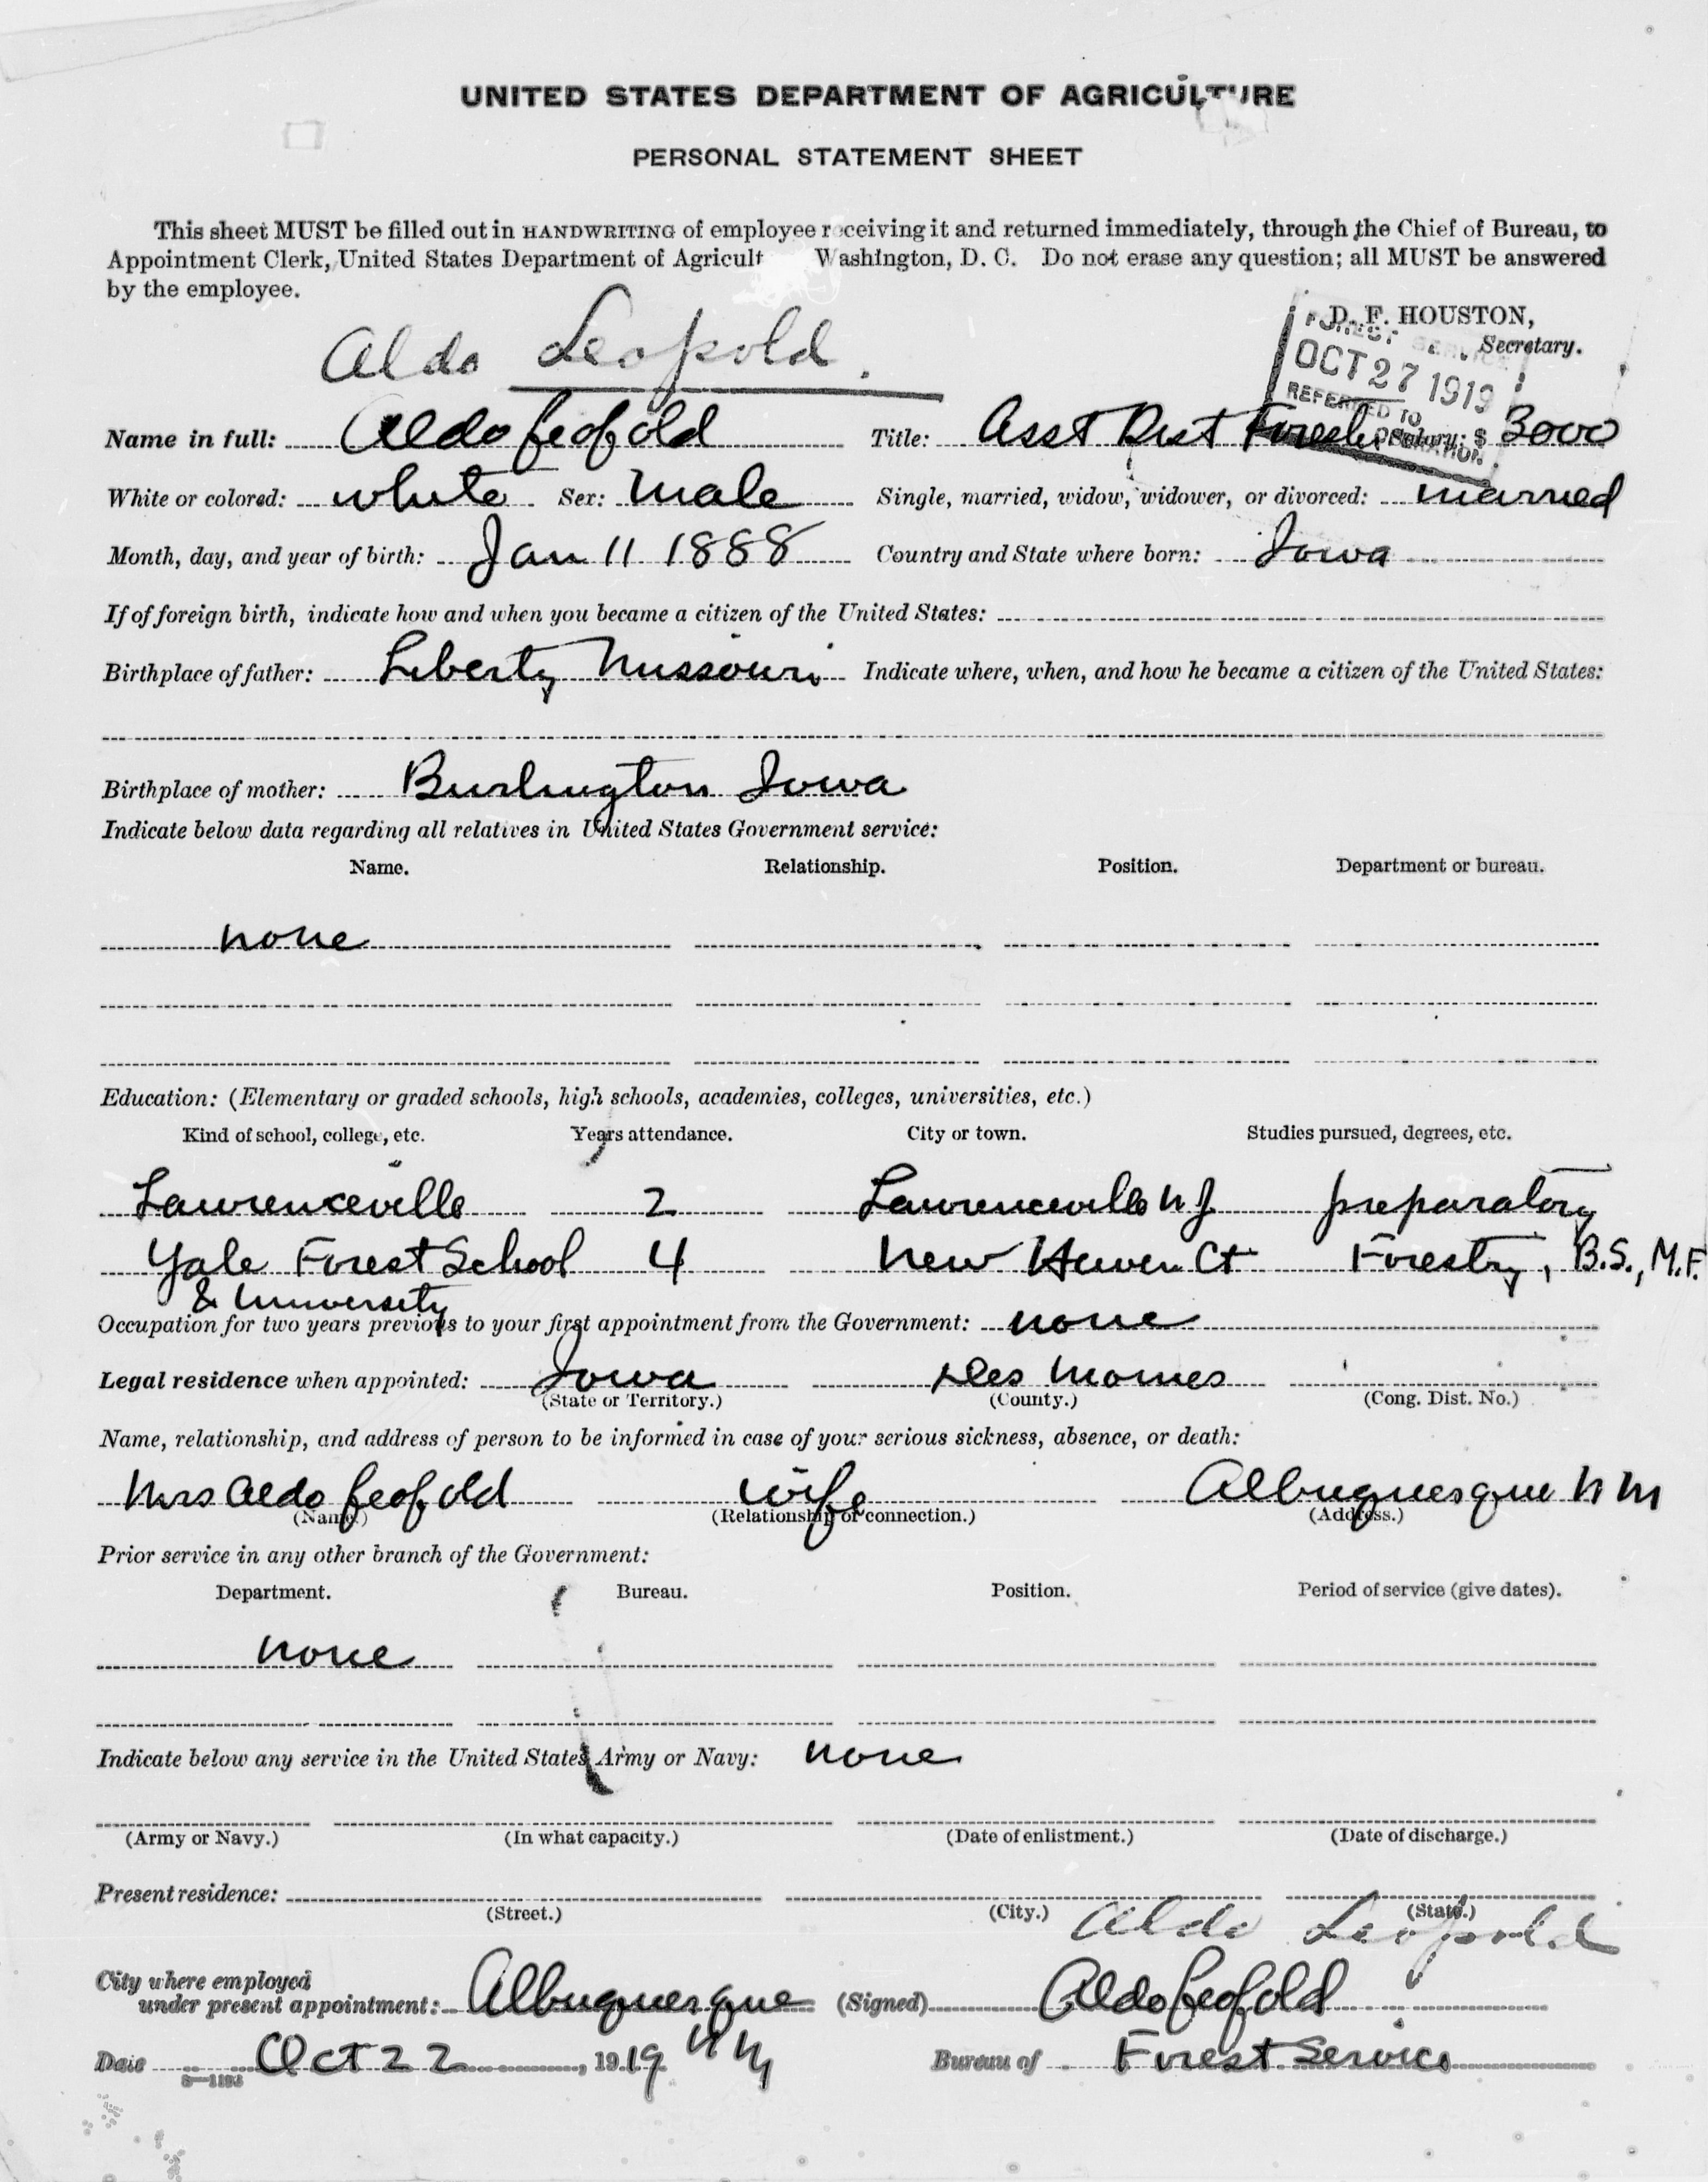 UNITED STATES DEPARTMENT OF AGRICULTURE
PERSONAL STATEMENT SHEET
This sheet MUST be filled out in HANDWRITING of employee receiving it and returned immediately, through the Chief of Bureau, to
Appointment Clerk, United States Department of Agricult Washington, D. C. Do not erase any question; all MUST be answered
by the employee.
D. F. HOUSTON,
Secretary.
Aldo Leopold.
FOREST SERVICE
OCT 27 1919
REFERRED TO
OPERATION
Name in full: Aldo Leopold Title: Asst Dist Forester Salary: $ 3000
White or colored: white Sex: Male Single, married, widow, widower, or divorced: married
Month, day, and year of birth: Jan 11 1888 Country and State where born: Iowa
If of foreign birth, indicate how and when you became a citizen of the United States:
Birthplace of father: Liberty Missouri Indicate where, when, and how he became a citizen of the United States:
Birthplace of mother: Burlington Iowa
Indicate below data regarding all relatives in United States Government service:
Name. Relationship. Position. Department or bureau.
none
Education: (Elementary or graded schools, high schools, academies, colleges, universities, etc.)
Kind of school, college, etc. Years attendance. City or town. Studies pursued, degrees, etc.
Lawrenceville 2 Lawrenceville N J preparatory
Yale Forest School 4 New Haven Ct Forestry, B.S., M.F.
& University
Occupation for two years previous to your first appointment from the Government: none
Legal residence when appointed: Iowa Des Moines
(State or Territory.) (County.) (Cong. Dist. No.)
Name, relationship, and address of person to be informed in case of your serious sickness, absence, or death:
Mrs Aldo Leopold wife Albuquerque N M
(Name.) (Relationship or connection.) (Address.)
Prior service in any other branch of the Government:
Department. Bureau. Position. Period of service (give dates).
none
Indicate below any service in the United States Army or Navy: none
(Army or Navy.) (In what capacity.) (Date of enlistment.) (Date of discharge.)
Present residence:
(Street.) (City.) (State.)
Aldo Leopold
City where employed
under present appointment: Albuquerque (Signed) Aldo Leopold
N M
Date Oct 22, 1919 Bureau of Forest Service
8—1193